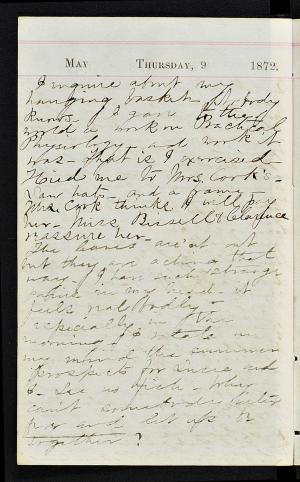 May Thursday, 9 1872.
I inquire about my
hanging basket. Nobody
knows. I gave to the
world a work on Practical
Physiology and work it
was - that is I exercised.
Hied me to Mrs. Cook's -
New hat - and a game -
Mrs. Cook thinks I will pay
her - Miss Bissell & Clarence
reassure her.
The leaves are'nt out
but they are acting that
way. I have such strange
pains in my head - it
feels real badly -
especially in the
morning. I state in
my mind the summer
prospects for Susie and
I - see no
cant somebody
over and let us be
together?